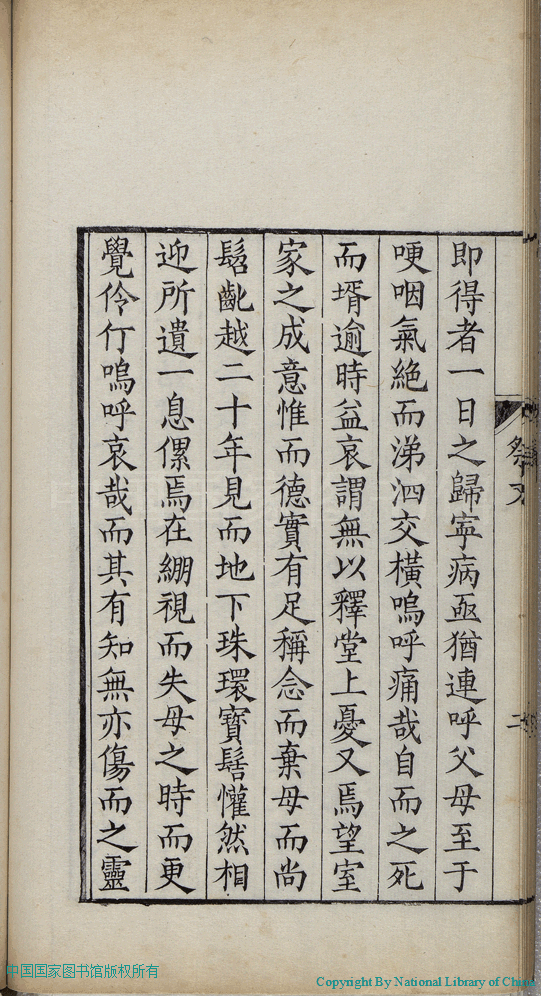 即得者一日之歸寧病亟猶連呼父母至于
哽咽氣絕而涕泗交橫嗚呼痛哉自而之死
而壻逾時益哀謂無以釋堂上憂又焉望室
家之成意惟而德實有足稱念而棄母而尚
髫齔越二十年見而地下珠環寶髻懽然相
迎所遺一息傫焉在綳視而失母之時而更
覺伶仃嗚呼哀哉而其有知無亦傷而之靈
祭文
二
中国国家图书馆版权所有
Copyright By National Library of China